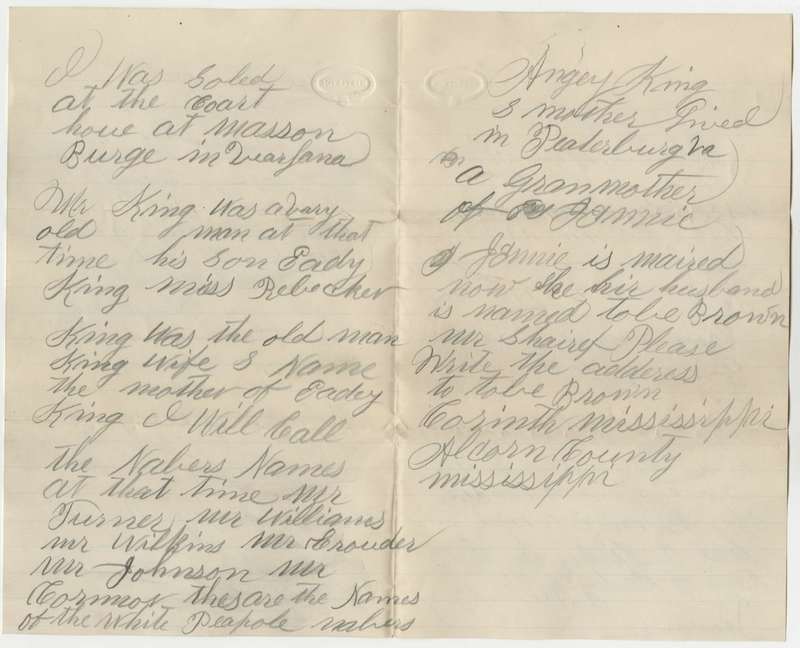 I Was Soled
at the Coart
houe at Masson
Burge in
Mr King was a vary
old man at that
time his Son Eady
King miss Rebecker
King Was the old man
King Wife & Name
the mother of Eadey
King I Will Call
the Nabers Names
at that time Mr
Turner, Mr Williams
mr Wilkins Mr Crouder
Mr Johnson Mr
thes are the Names
of the White Peapole nabers
Angey King
& mother Lived
in Peaterburg va
a Granmother
of Jannie
Jannie is maired
now she hir husband
is named tobe Brown
Mr Shairef Please
Write the address
to tobe Brown
Corinth mississippi
Alcorn County
mississippi